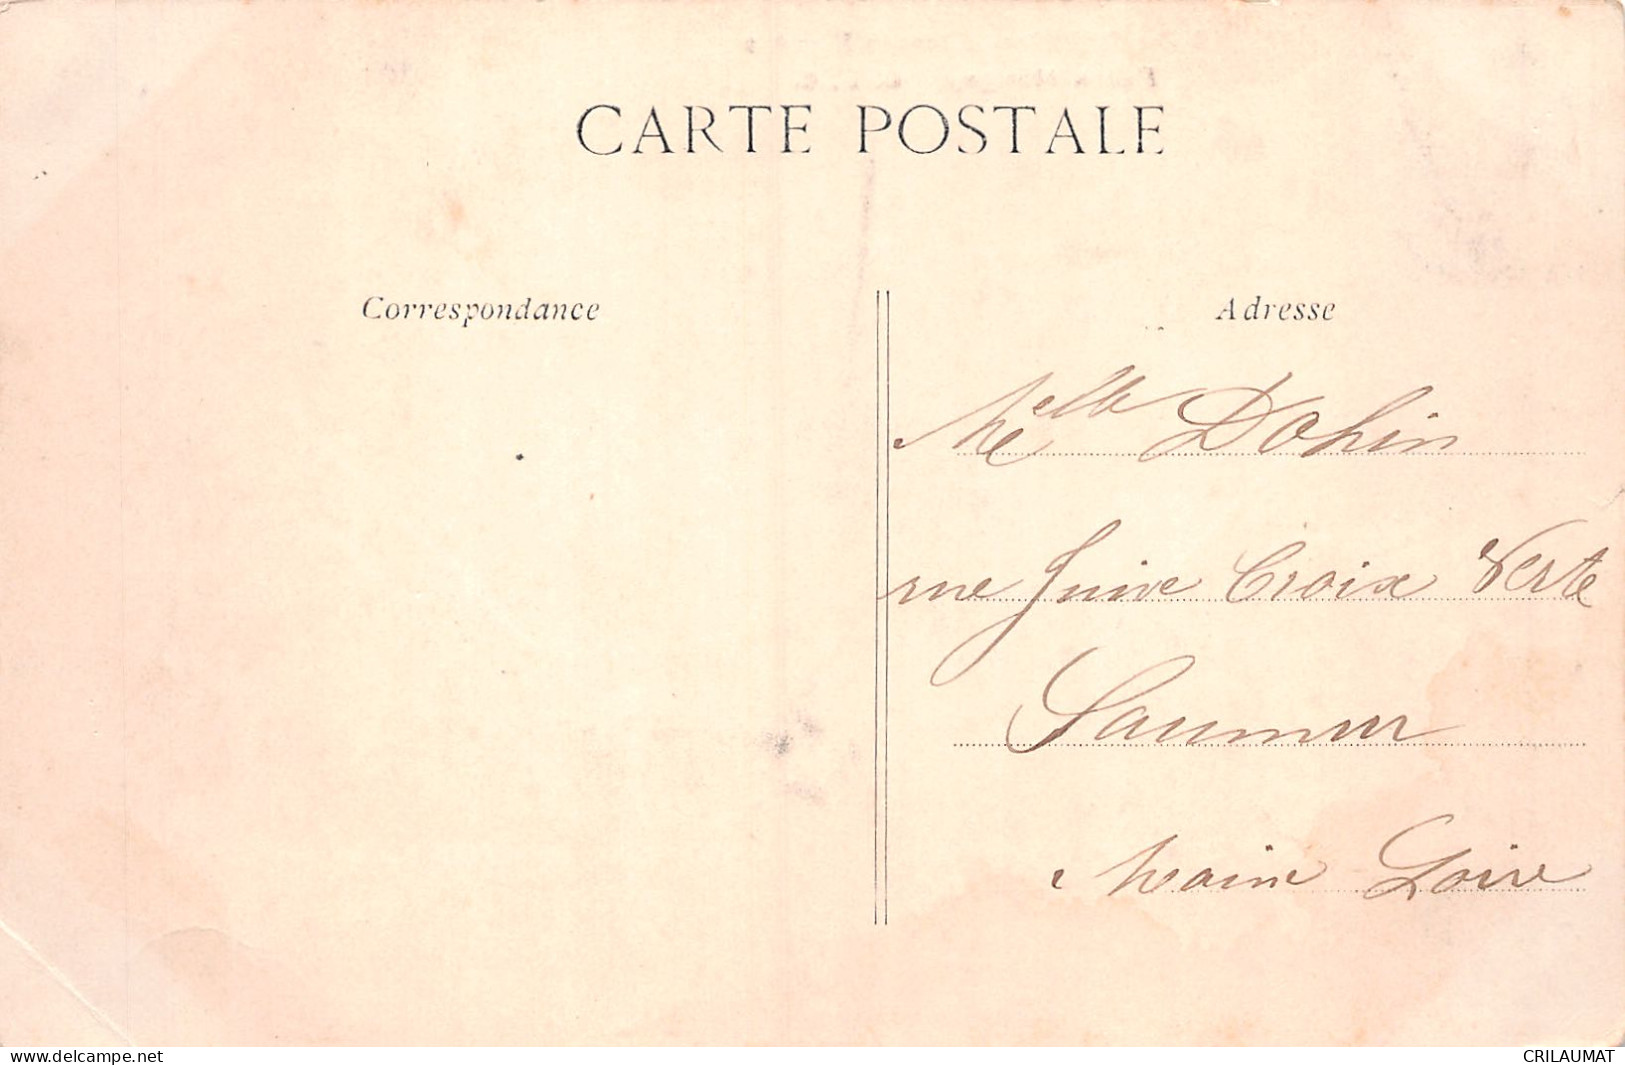 CARTE POSTALE
Correspondance
Adresse
Melle Dohin
rue Juive Croix Verte
Saumur
Maine Loire
www.delcampe.net
CRILAUMAT